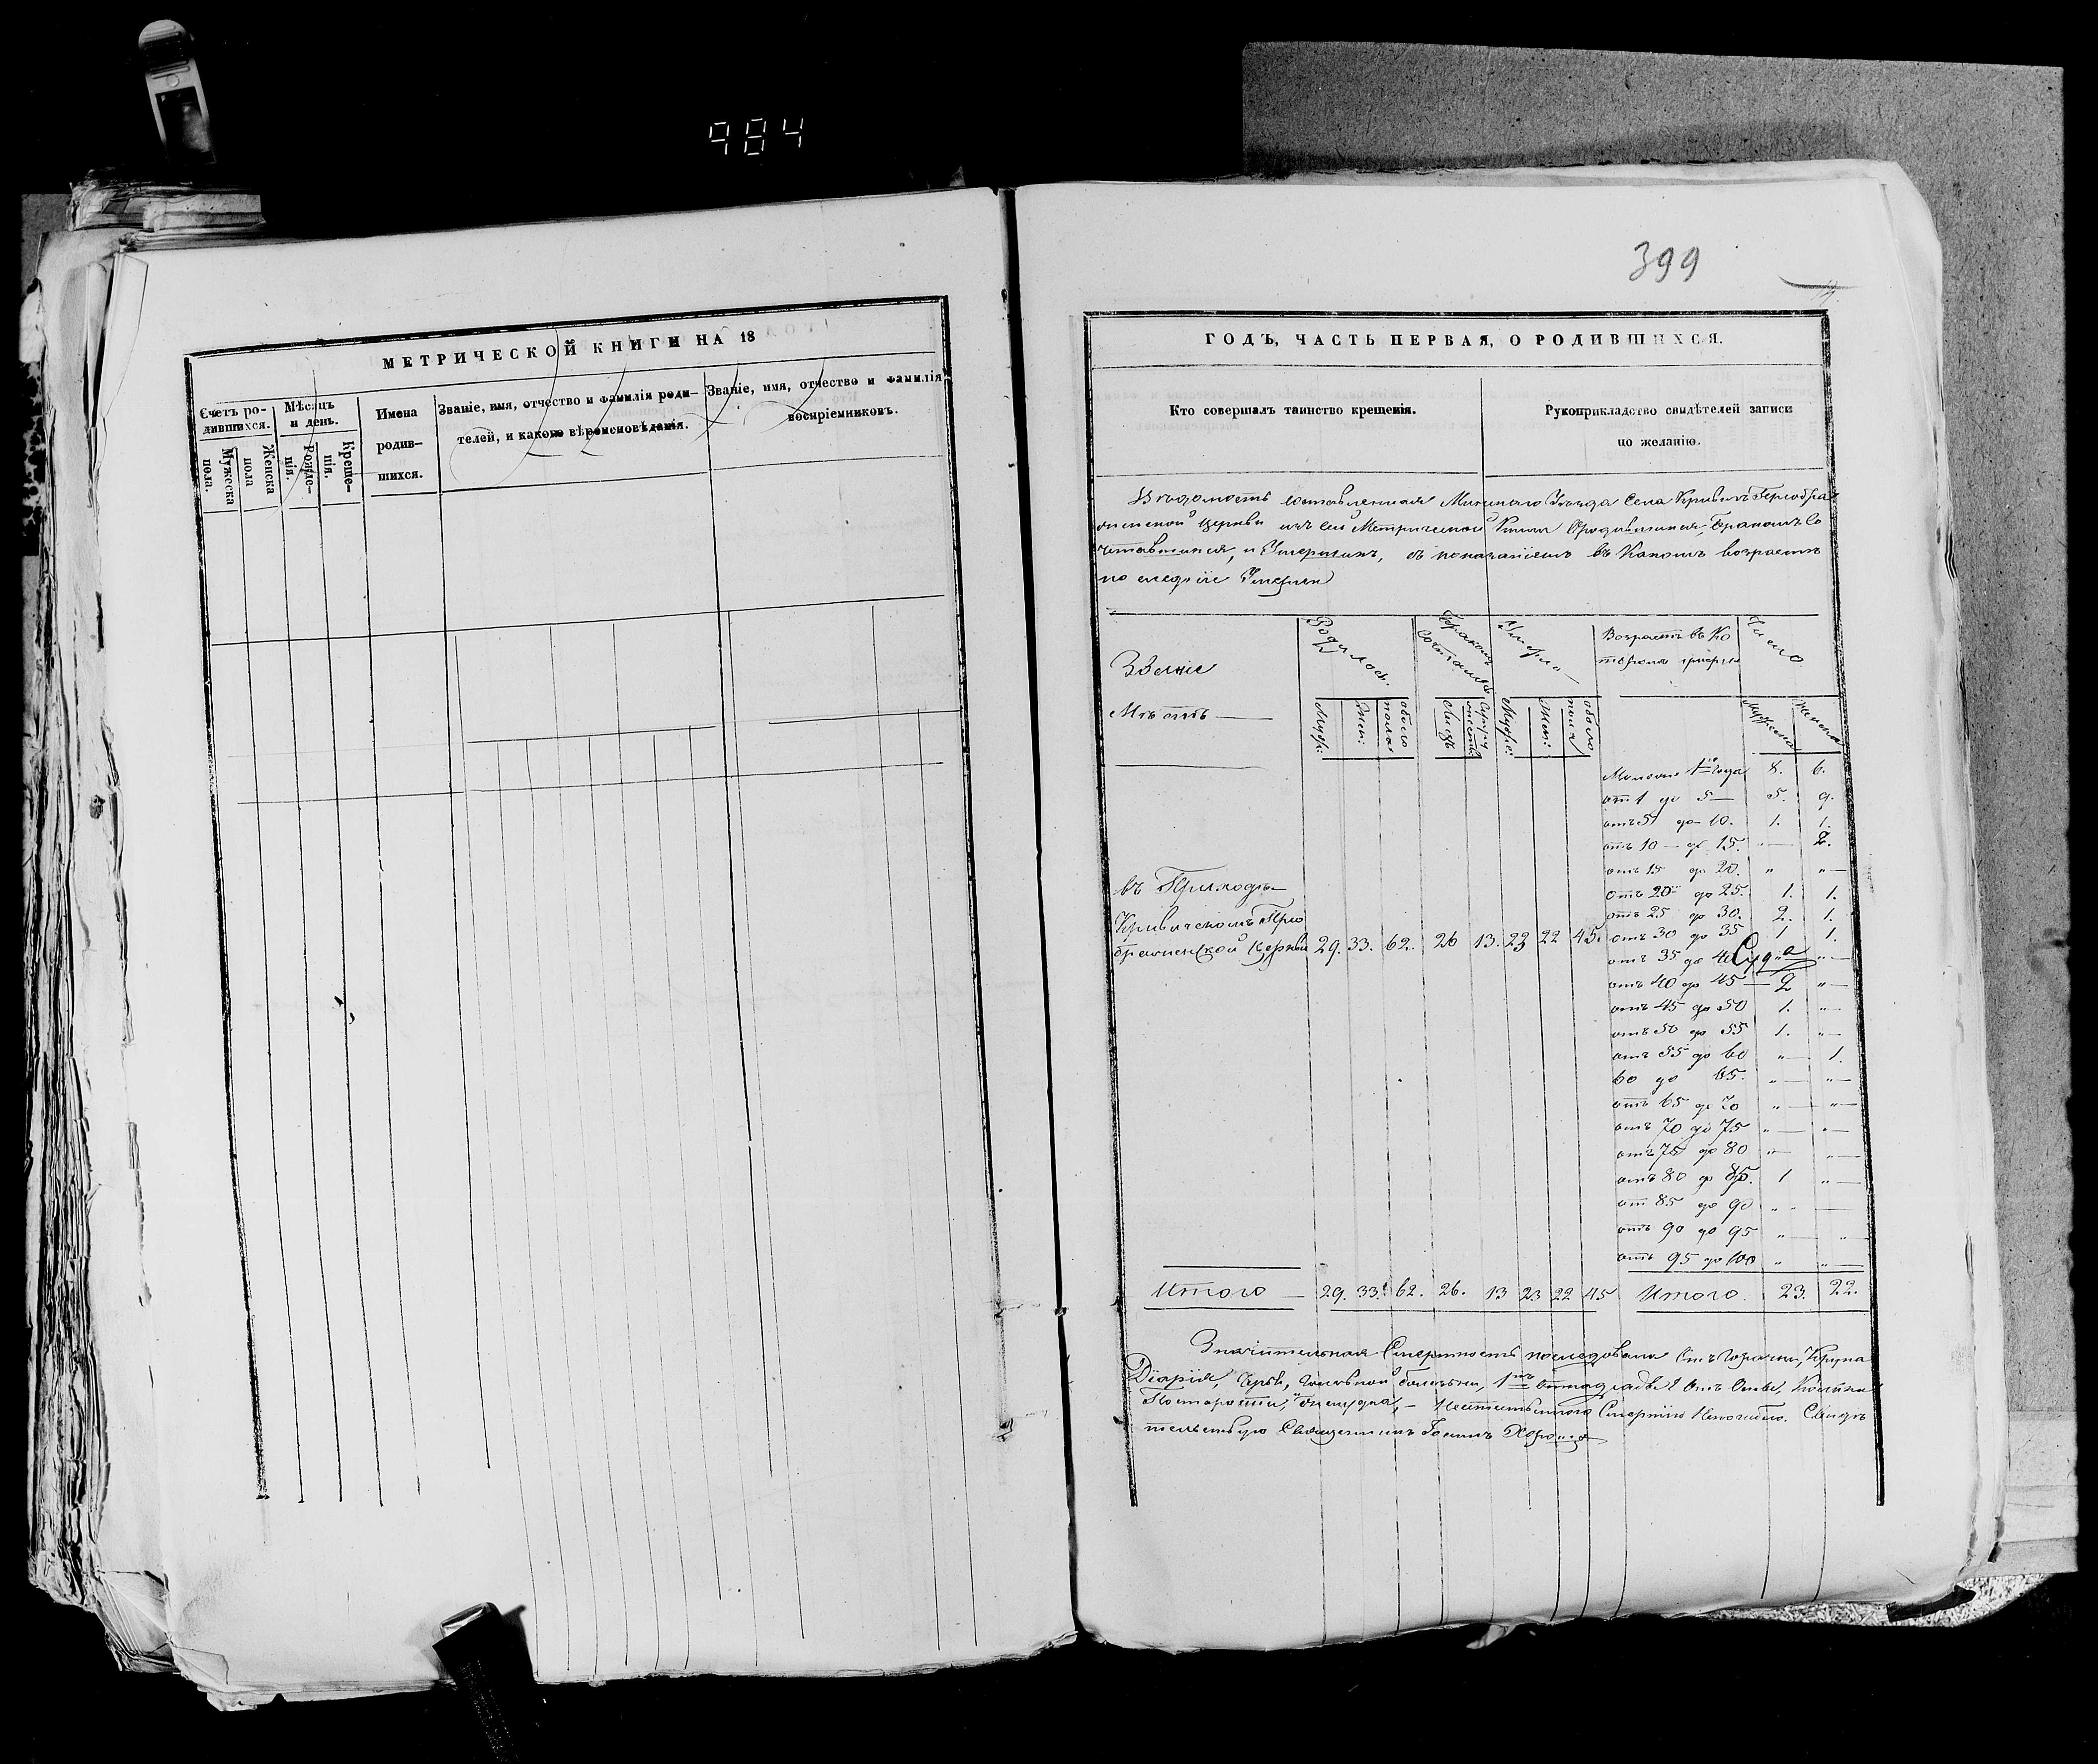 984
399
МЕТРИЧЕСКОЙ КНИГИ НА 18
Счетъ ро-
дившихся.
Мужеска
пола.
Женска
пола
Мѣсяцъ
и день.
Рожде-
нія.
Креще-
нія.
Имена
родив-
шихся.
Званіе, имя, отчество и фамилія роди-
телей, и какого вѣроисповѣданія.
Званіе, имя, отчество и фамилія
воспріемниковъ.
ГОДЪ, ЧАСТЬ ПЕРВАЯ, О РОДИВШИХСЯ.
Кто совершалъ таинство крещенія.
Рукоприкладство свидѣтелей записи
по желанію.
Вѣдомость составленная Минскаго Уѣзда Села Кривичъ Преобра
женской Церкви изъ сей Метрической Книги Ородившихся, Бракомъ Со
четавшихся, и Умершихъ, съ показаніемъ въ Какомъ возрастѣ
последніе Умерли
Званіе
Мѣстъ —
Родилось.
Муж:
Жен:
обоего
пола
Бракомъ
Лицъ
Умерло —
Муже:
Жен:
обоего
пола
Возрастъ въ ко
торомъ умерли
Число
мужеска
женска
Моложе 1го года 8. 6.
отъ 1 до 5 — 5. 9.
отъ 5 до 10. 1. 1.
отъ 10 — до 15. " — 2.
отъ 15 до 20. " " —
отъ 20 до 25. 1. 1.
отъ 25 до 30. 2. 1.
отъ 30 до 35 1 1.
отъ 35 до 40 " —
отъ 40 до 45 — 2 " —
отъ 45 до 50 1. " —
отъ 50 до 55 1. " —
отъ 55 до 60 " — 1.
60 до 65. " — " —
отъ 65 до 70 " — " —
отъ 70 до 75 " — " —
отъ 75 до 80 " — " —
отъ 80 до 85. 1 " —
от 85 до 90 " —
отъ 90 до 95 " — "
отъ 95 до 100 " " —
въ Приходѣ —
Кривичскомъ Прео
браженской Церкви 29. 33. 62. 26 13. 23 22 45.
Итого — 29. 33. 62. 26. 13 23 22 45 Итого. 23. 22.
Значительная Смертность последовала Отъ Горячки, Крупа
Діаріи, головной болезни, 1нъ Отъ Оспы,
Постарости, — Смертію Свидѣ
тельствую Священникъ Іоаннъ